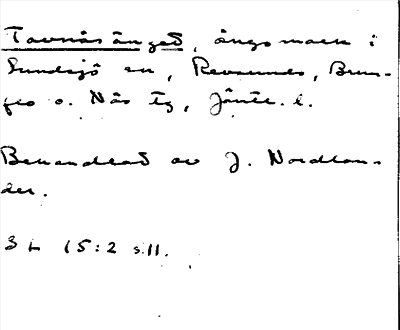 Tavnäsänget, ängsmark i
Sundsjö sn, Revsunds, Brun-
flo o. Näs tg, Jämtl. l.
Behandlat av J. Nordlan-
der.
SL 15:2 s.11.